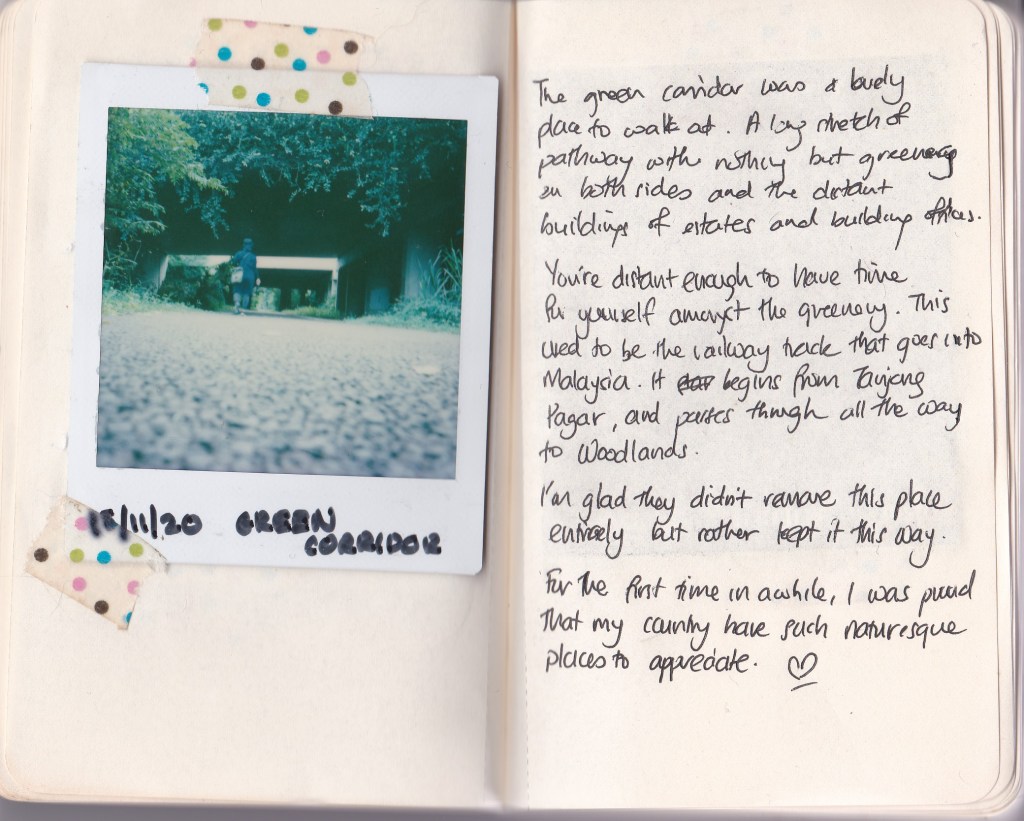 15/11/20 GREEN
CORRIDOR
The green corridor was a lovely
place to walk at. A long stretch of
pathway with nothing but greenery
on both sides and the distant
buildings of estates and building offices.
You're distant enough to have time
for yourself amongst the greenery. This
used to be the railway track that goes into
Malaysia. It begins from Tanjong
Pagar, and passes through all the way
to Woodlands.
I'm glad they didn't remove this place
entirely but rather kept it this way.
For the first time in awhile, I was proud
that my country have such naturesque
places to appreciate.